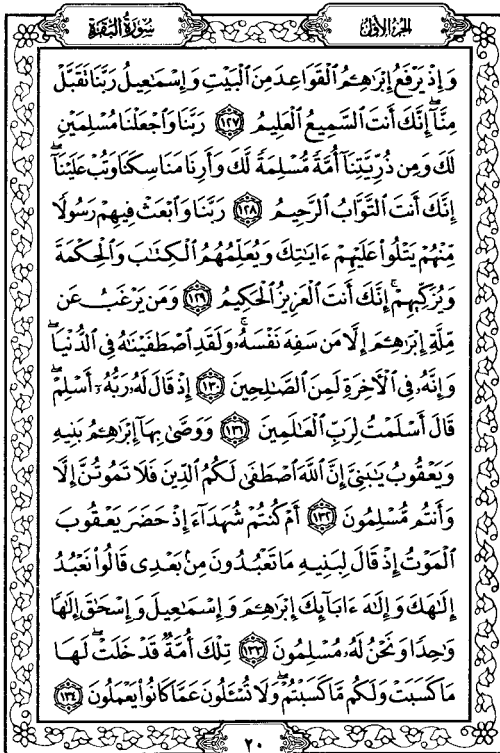 الجزء الأول
سورة البقرة
وَإِذْ يَرْفَعُ إِبْرَٰهِـۧمُ ٱلْقَوَاعِدَ مِنَ ٱلْبَيْتِ وَإِسْمَـٰعِيلُ رَبَّنَا تَقَبَّلْ
مِنَّآ ۖ إِنَّكَ أَنتَ ٱلسَّمِيعُ ٱلْعَلِيمُ ﴿١٢٧﴾ رَبَّنَا وَٱجْعَلْنَا مُسْلِمَيْنِ
لَكَ وَمِن ذُرِّيَّتِنَآ أُمَّةً مُّسْلِمَةً لَّكَ وَأَرِنَا مَنَاسِكَنَا وَتُبْ عَلَيْنَآ ۖ
إِنَّكَ أَنتَ ٱلتَّوَّابُ ٱلرَّحِيمُ ﴿١٢٨﴾ رَبَّنَا وَٱبْعَثْ فِيهِمْ رَسُولًا
مِّنْهُمْ يَتْلُوا۟ عَلَيْهِمْ ءَايَـٰتِكَ وَيُعَلِّمُهُمُ ٱلْكِتَـٰبَ وَٱلْحِكْمَةَ
وَيُزَكِّيهِمْ ۚ إِنَّكَ أَنتَ ٱلْعَزِيزُ ٱلْحَكِيمُ ﴿١٢٩﴾ وَمَن يَرْغَبُ عَن
مِّلَّةِ إِبْرَٰهِـۧمَ إِلَّا مَن سَفِهَ نَفْسَهُۥ ۚ وَلَقَدِ ٱصْطَفَيْنَـٰهُ فِى ٱلدُّنْيَا ۖ
وَإِنَّهُۥ فِى ٱلْـَٔاخِرَةِ لَمِنَ ٱلصَّـٰلِحِينَ ﴿١٣٠﴾ إِذْ قَالَ لَهُۥ رَبُّهُۥٓ أَسْلِمْ ۖ
قَالَ أَسْلَمْتُ لِرَبِّ ٱلْعَـٰلَمِينَ ﴿١٣١﴾ وَوَصَّىٰ بِهَآ إِبْرَٰهِـۧمُ بَنِيهِ
وَيَعْقُوبُ يَـٰبَنِىَّ إِنَّ ٱللَّهَ ٱصْطَفَىٰ لَكُمُ ٱلدِّينَ فَلَا تَمُوتُنَّ إِلَّا
وَأَنتُم مُّسْلِمُونَ ﴿١٣٢﴾ أَمْ كُنتُمْ شُهَدَآءَ إِذْ حَضَرَ يَعْقُوبَ
ٱلْمَوْتُ إِذْ قَالَ لِبَنِيهِ مَا تَعْبُدُونَ مِنۢ بَعْدِى قَالُوا۟ نَعْبُدُ
إِلَـٰهَكَ وَإِلَـٰهَ ءَابَآئِكَ إِبْرَٰهِـۧمَ وَإِسْمَـٰعِيلَ وَإِسْحَـٰقَ إِلَـٰهًا
وَٰحِدًا وَنَحْنُ لَهُۥ مُسْلِمُونَ ﴿١٣٣﴾ تِلْكَ أُمَّةٌ قَدْ خَلَتْ ۖ لَهَا
مَا كَسَبَتْ وَلَكُم مَّا كَسَبْتُمْ ۖ وَلَا تُسْـَٔلُونَ عَمَّا كَانُوا۟ يَعْمَلُونَ ﴿١٣٤﴾
٢٠